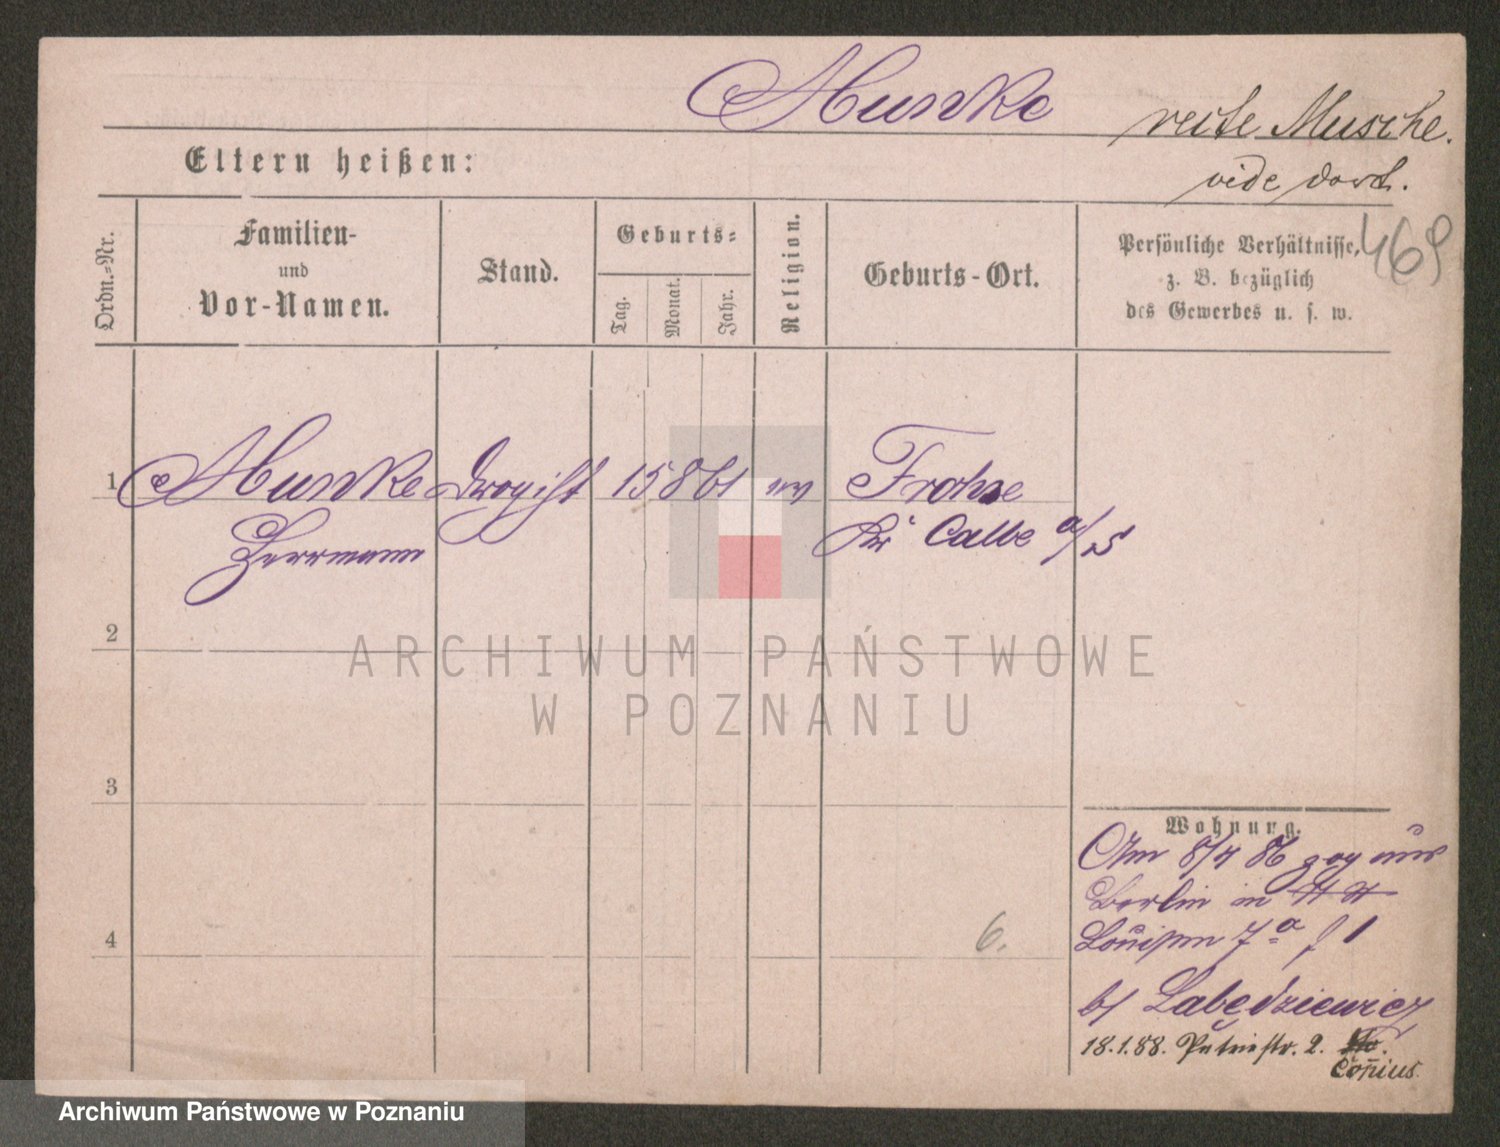 Munke
recte Musche.
Eltern heißen:
vide dort.
Ordn.-Nr.
Familien-
und
Vor-Namen.
Stand.
Geburts-
Tag.
Monat.
Jahr.
Religion.
Geburts-Ort.
Persönliche Verhältnisse,
z. B. bezüglich
des Gewerbes u. s. w.
469
1 Munke Drogist 15 8 61 ev Frohse
Herrmann Kr Calbe a/S
2
ARCHIWUM PAŃSTWOWE
W POZNANIU
3
Wohnung.
Am 8/4 86 zog aus
Berlin in
Louisen 7a 1
4
6.
b/ Labędziewicz
18.1.88. Petristr. 2.
Conius.
Archiwum Państwowe w Poznaniu